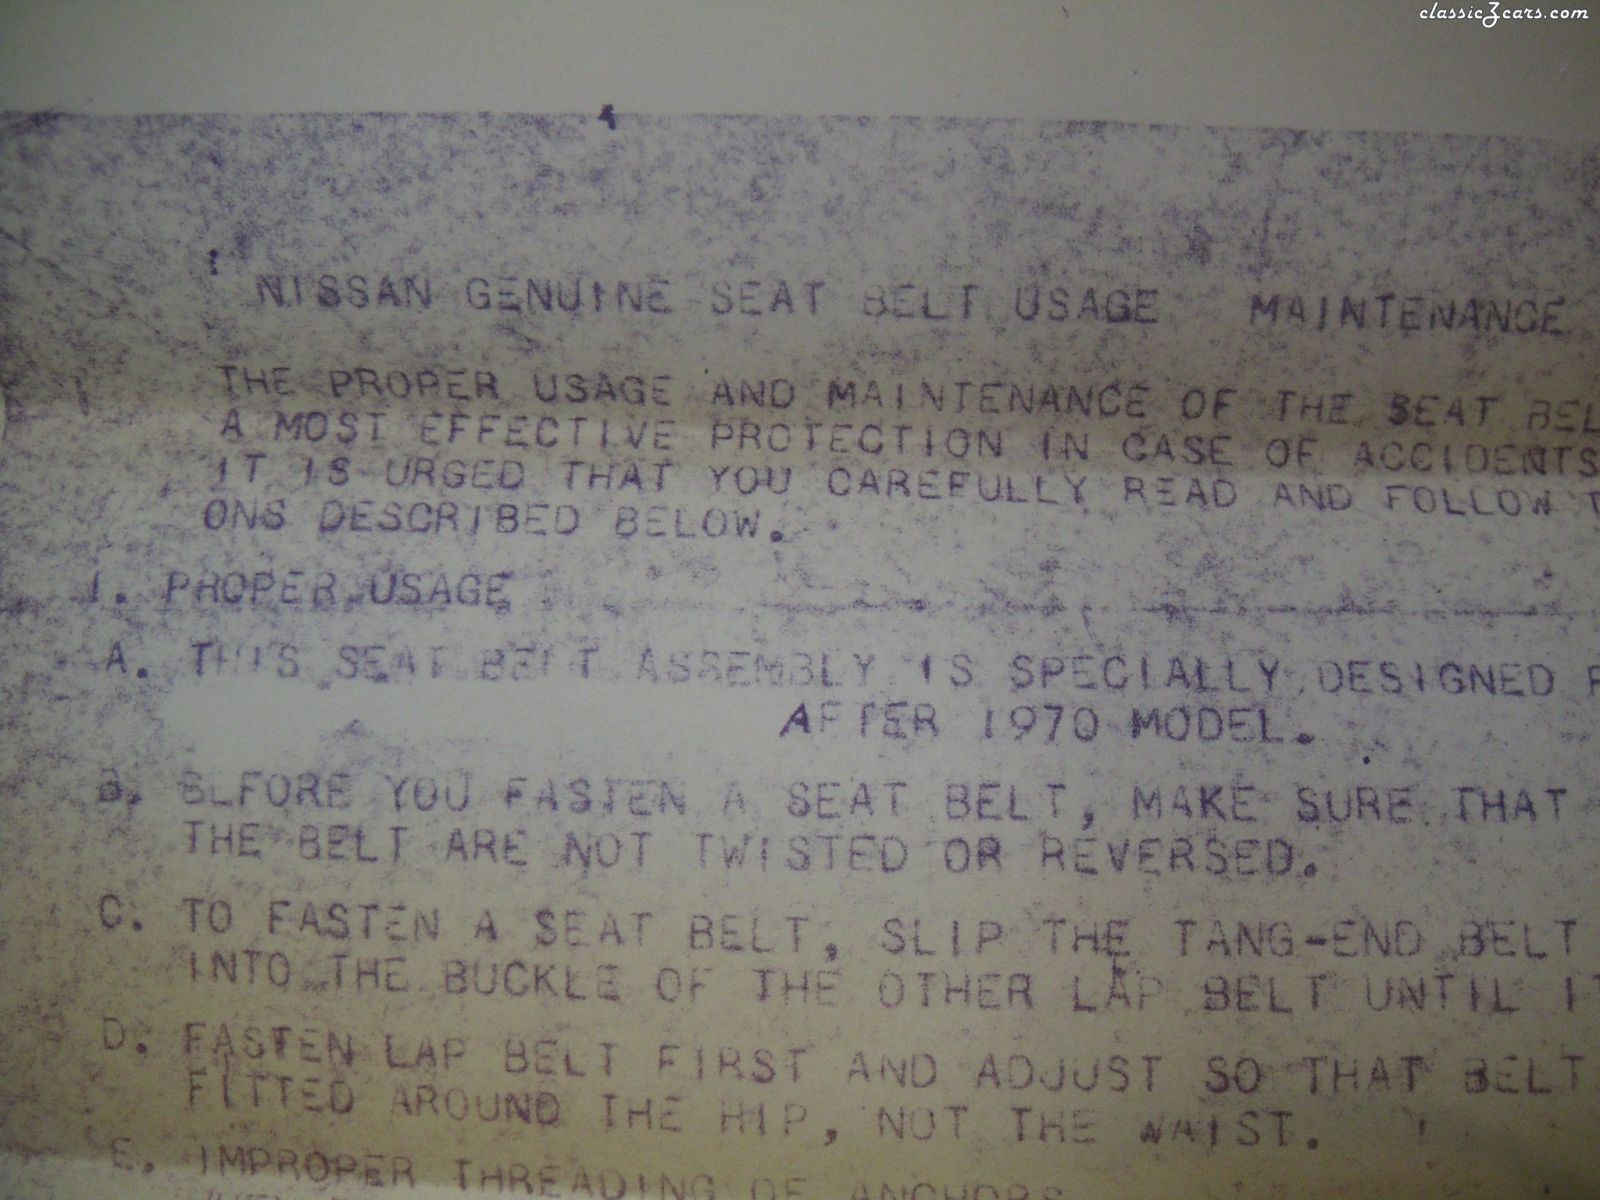 classicZcars.com
NISSAN GENUINE SEAT BELT USAGE MAINTENANCE
THE PROPER USAGE AND MAINTENANCE OF THE SEAT BEL
A MOST EFFECTIVE PROTECTION IN CASE OF ACCIDENTS
IT IS URGED THAT YOU CAREFULLY READ AND FOLLOW T
ONS DESCRIBED BELOW.
1. PROPER USAGE
A. THIS SEAT BELT ASSEMBLY IS SPECIALLY DESIGNED F
AFTER 1970 MODEL.
B. BEFORE YOU FASTEN A SEAT BELT, MAKE SURE THAT
THE BELT ARE NOT TWISTED OR REVERSED.
C. TO FASTEN A SEAT BELT, SLIP THE TANG-END BELT
INTO THE BUCKLE OF THE OTHER LAP BELT UNTIL IT
D. FASTEN LAP BELT FIRST AND ADJUST SO THAT BELT
FITTED AROUND THE HIP, NOT THE WAIST.
E. IMPROPER THREADING OF ANCHORS